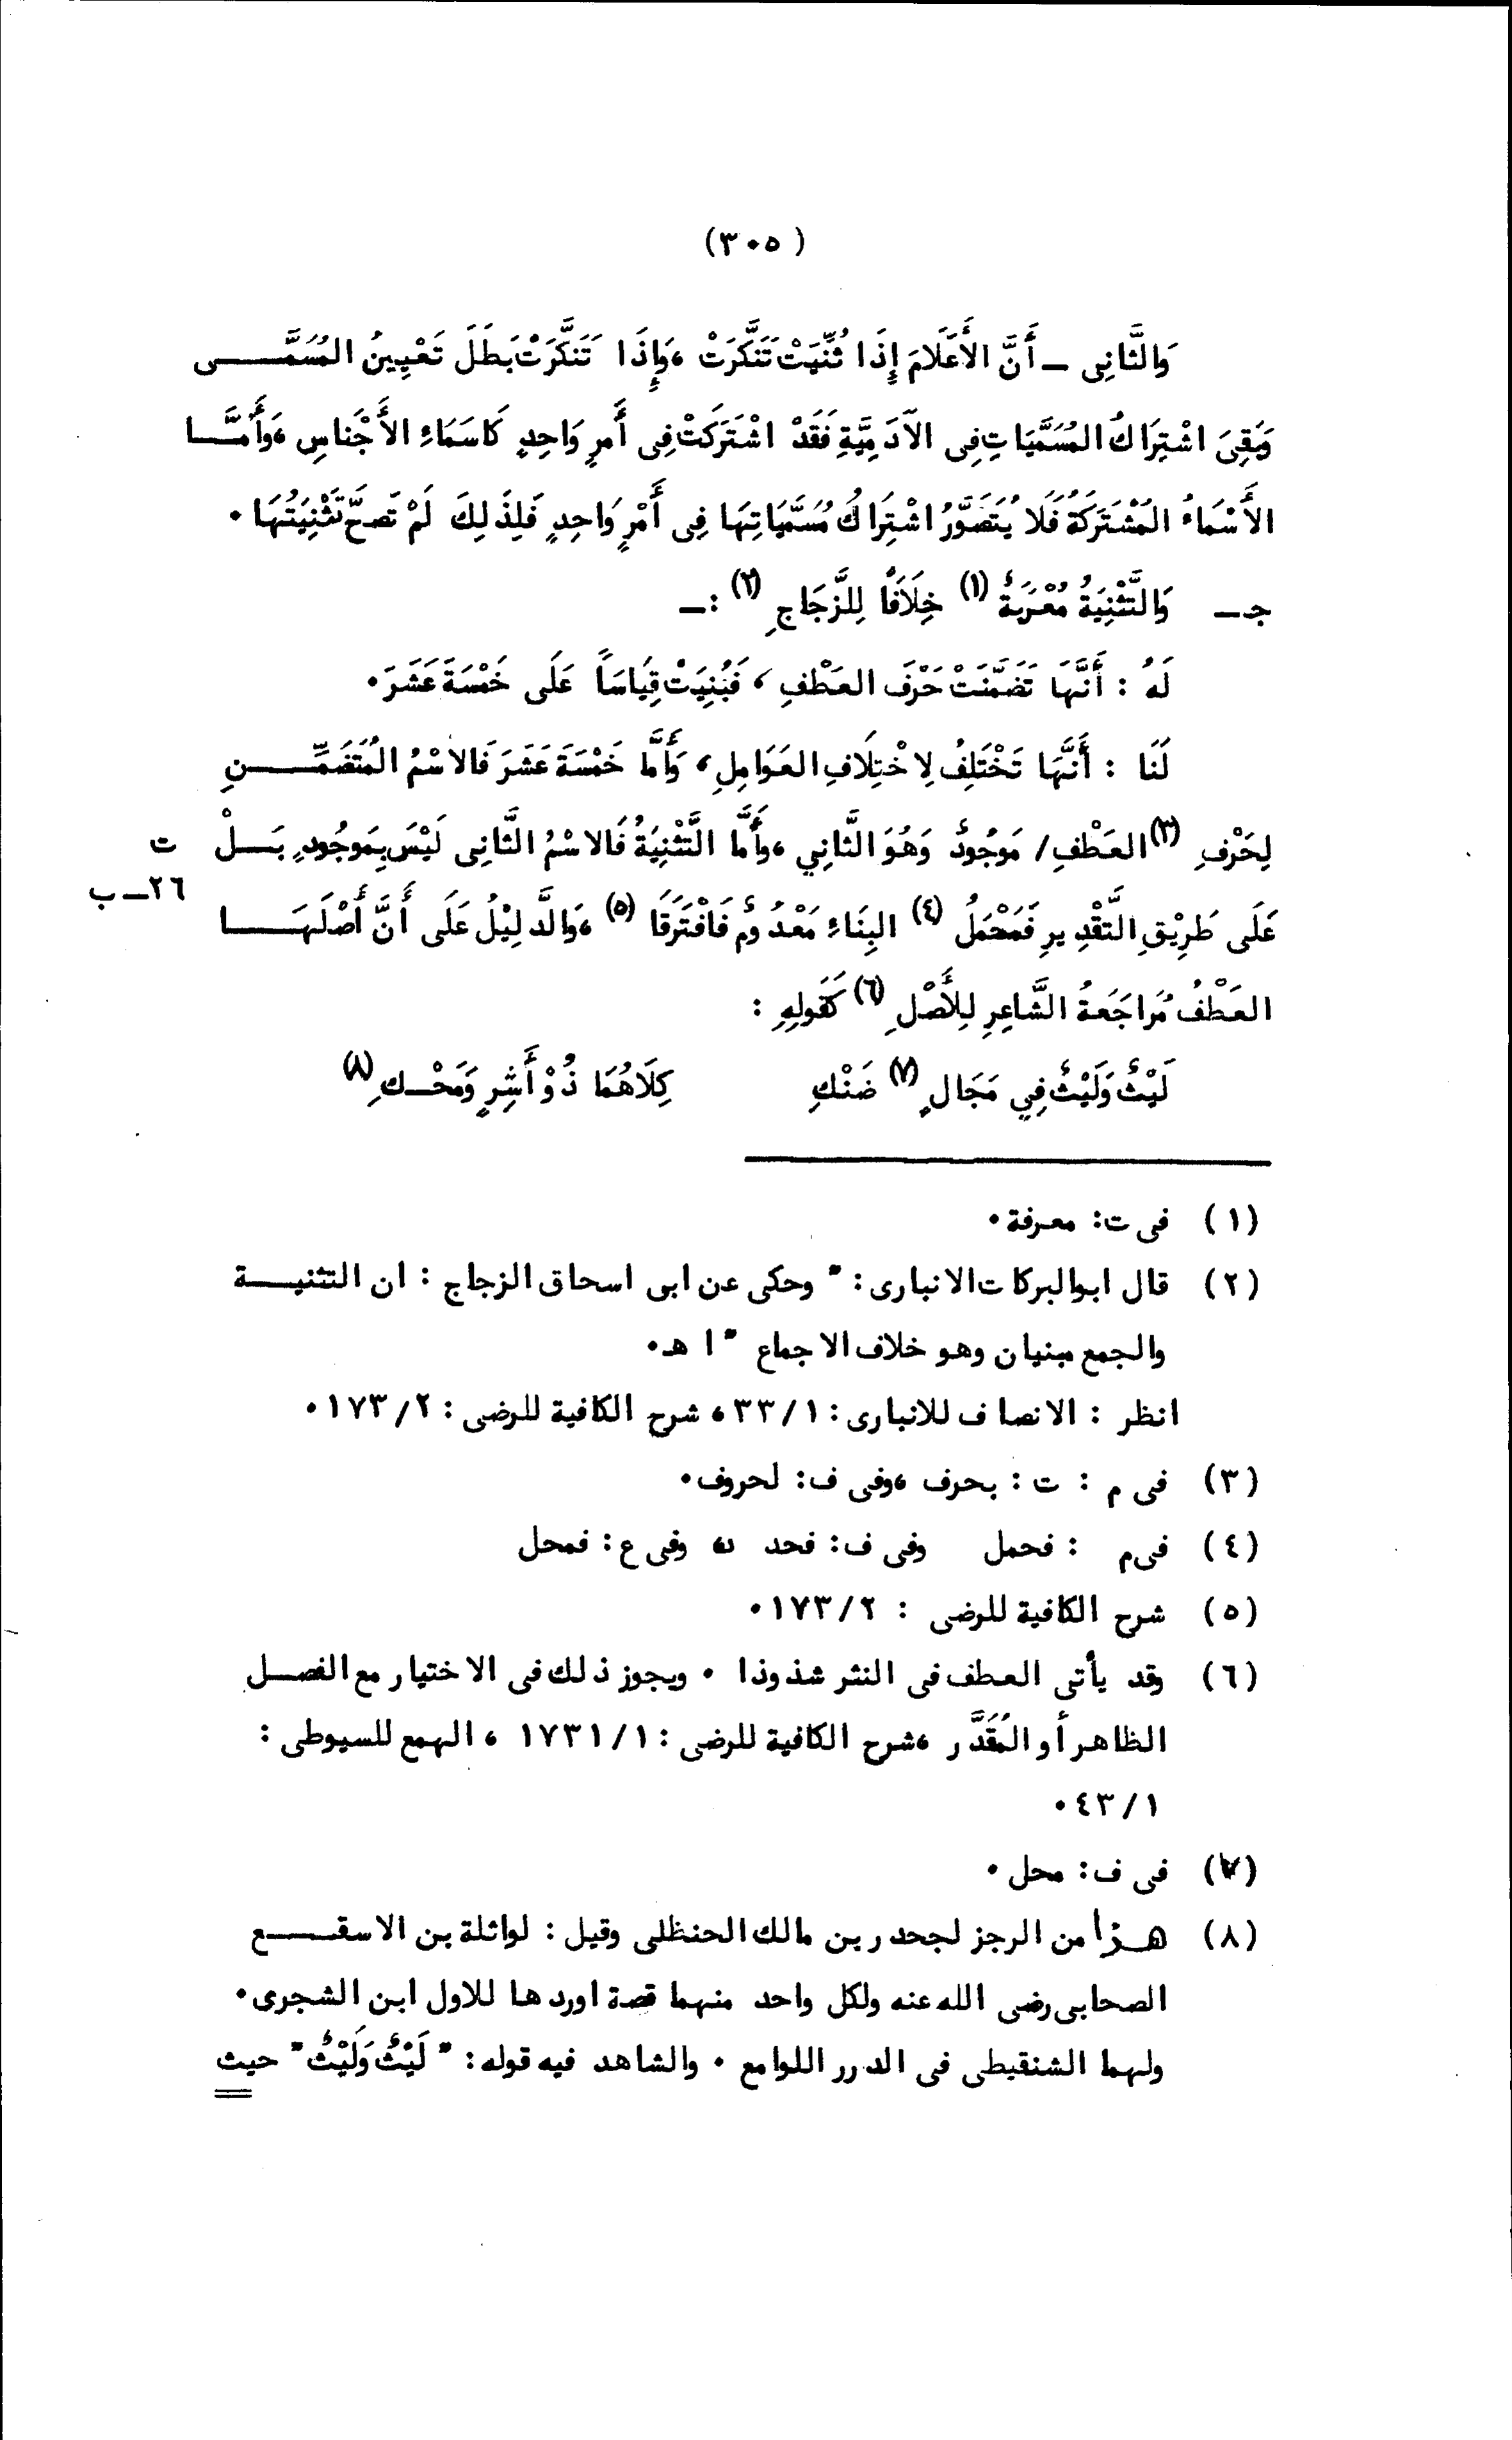 (٣٠٥)
وَالثَّانِى ـ أَنَّ الأَعْلَامَ إِذَا ثُنِّيَتْ تَنَكَّرَتْ ، وَإِذَا تَنَكَّرَتْ بَطَلَ تَعْيِينُ المُسَمَّى
وَبَقِىَ اشْتِرَاكُ المُسَمَّيَاتِ فِى الآدَمِيَّةِ فَقَدْ اشْتَرَكَتْ فِى أَمرٍ وَاحِدٍ كَاسَمَاءِ الأَجْناسِ ، وَأَمَّا
الأَسْمَاءُ المُشْتَرَكَةُ فَلا يُتَصَوَّرُ اشْتِرَاكُ مُسَمَّيَاتِهَا فِى أَمْرٍ وَاحِدٍ فَلِذَلِكَ لَمْ تَصحّ تَثْنِيَتُهَا ٠
جـ ـ وَالتَّثْنِيَةُ مُعْرَبَةٌ (١) خِلَافًا لِلزَّجَاجِ (٢) :ـ
لَهُ : أَنَّهَا تَضَمَّنَتْ حَرْفَ العَطْفِ ، فَبُنِيَتْ قِيَاسَاً عَلَى خَمْسَةَ عَشَرَ ٠
لَنَا : أَنَّهَا تَخْتَلِفُ لِاخْتِلَافِ العَوَامِلِ ، وَأَمَّا خَمْسَةَ عَشَرَ فَالاسْمُ المُتَضَمِّنِ
لِحَرْفِ (٣) العَطْفِ / مَوجُودٌ وَهُوَ الثَّانِي ، وأَمَّا التَّثْنِيَةُ فَالاسْمُ الثَّانِى لَيْسَ بِمَوجُودٍ بَلْ ت
٢٦ـ ب
عَلَى طَرِيْقِ التَّقْدِيرِ فَمَحْمَلُ (٤) البِنَاءِ مَعْدُومٌ فَافْتَرَقَا (٥) ، وَالدَّلِيْلُ عَلَى أَنَّ أَصْلَهَا
العَطْفُ مُرَاجَعَةُ الشَّاعِرِ لِلأَصْلِ (٦) كَقَولِهِ :
لَيْثٌ وَلَيْثٌ فِي مَجَالٍ (٧) ضَنْكِ كِلَاهُمَا ذُوْ أَشِرٍ وَمَحْكِ (٨)
(١) فى ت: معرفة ٠
(٢) قال ابوالبركات الانبارى : " وحكى عن ابى اسحاق الزجاج : ان التثنيـة
والجمع مبنيان وهو خلاف الاجماع " ا هـ ٠
انظر : الانصاف للانبارى : ٣٣/١ ، شرح الكافية للرضى : ١٧٣/٢ ٠
(٣) فى م : ت : بحرف ، وفى ف: لحروف ٠
(٤) فى م : فحمل وفى ف: فحد وفى ع : فمحل
(٥) شرح الكافية للرضى : ١٧٣/٢ ٠
(٦) وقد يأتى العطف فى النثر شذوذا ٠ ويجوز ذلك فى الاختيار مع الفصـل
الظاهر أو المُقَدَّر ، شرح الكافية للرضى : ١٧٣١/١ ، الهمع للسيوطى :
٤٣/١ ٠
(٧) فى ف: محل ٠
(٨) هـذا من الرجز لجحدر بن مالك الحنظلى وقيل : لواثلة بن الاسقـع
الصحابى رضى الله عنه ولكل واحد منهما قصة اوردها للاول ابن الشجرى ٠
ولهما الشنقيطى فى الدرر اللوامع ٠ والشاهد فيه قوله : " لَيْثٌ وَلَيْثٌ " حيث